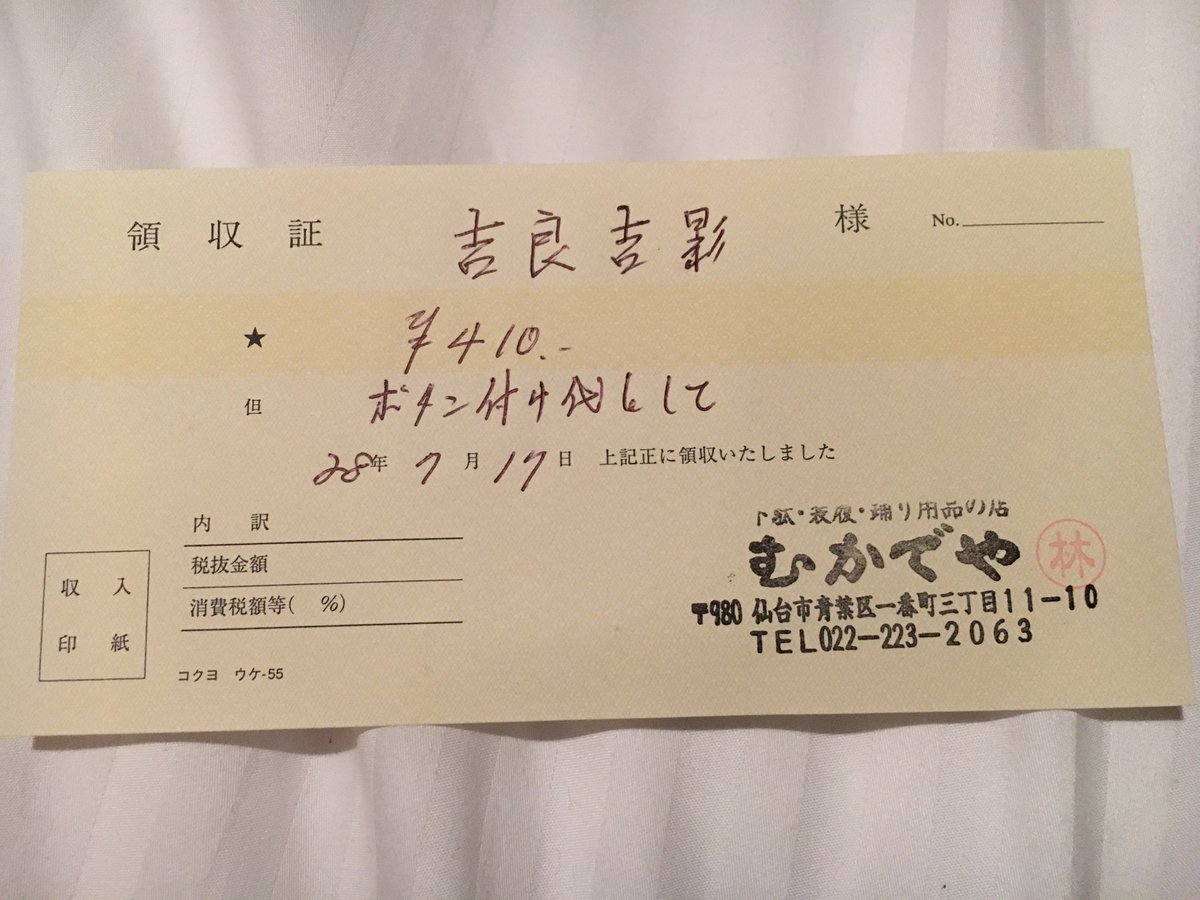 領収証 吉良吉影 様 No.
★ ¥410.-
但 ボタン付け代として
28年 7月 17日 上記正に領収いたしました
内訳
税抜金額
消費税額等( %)
収入
印紙
コクヨ ウケ-55
・踊り用品の店
むかでや 林
〒980 仙台市青葉区一番町三丁目11-10
TEL022-223-2063